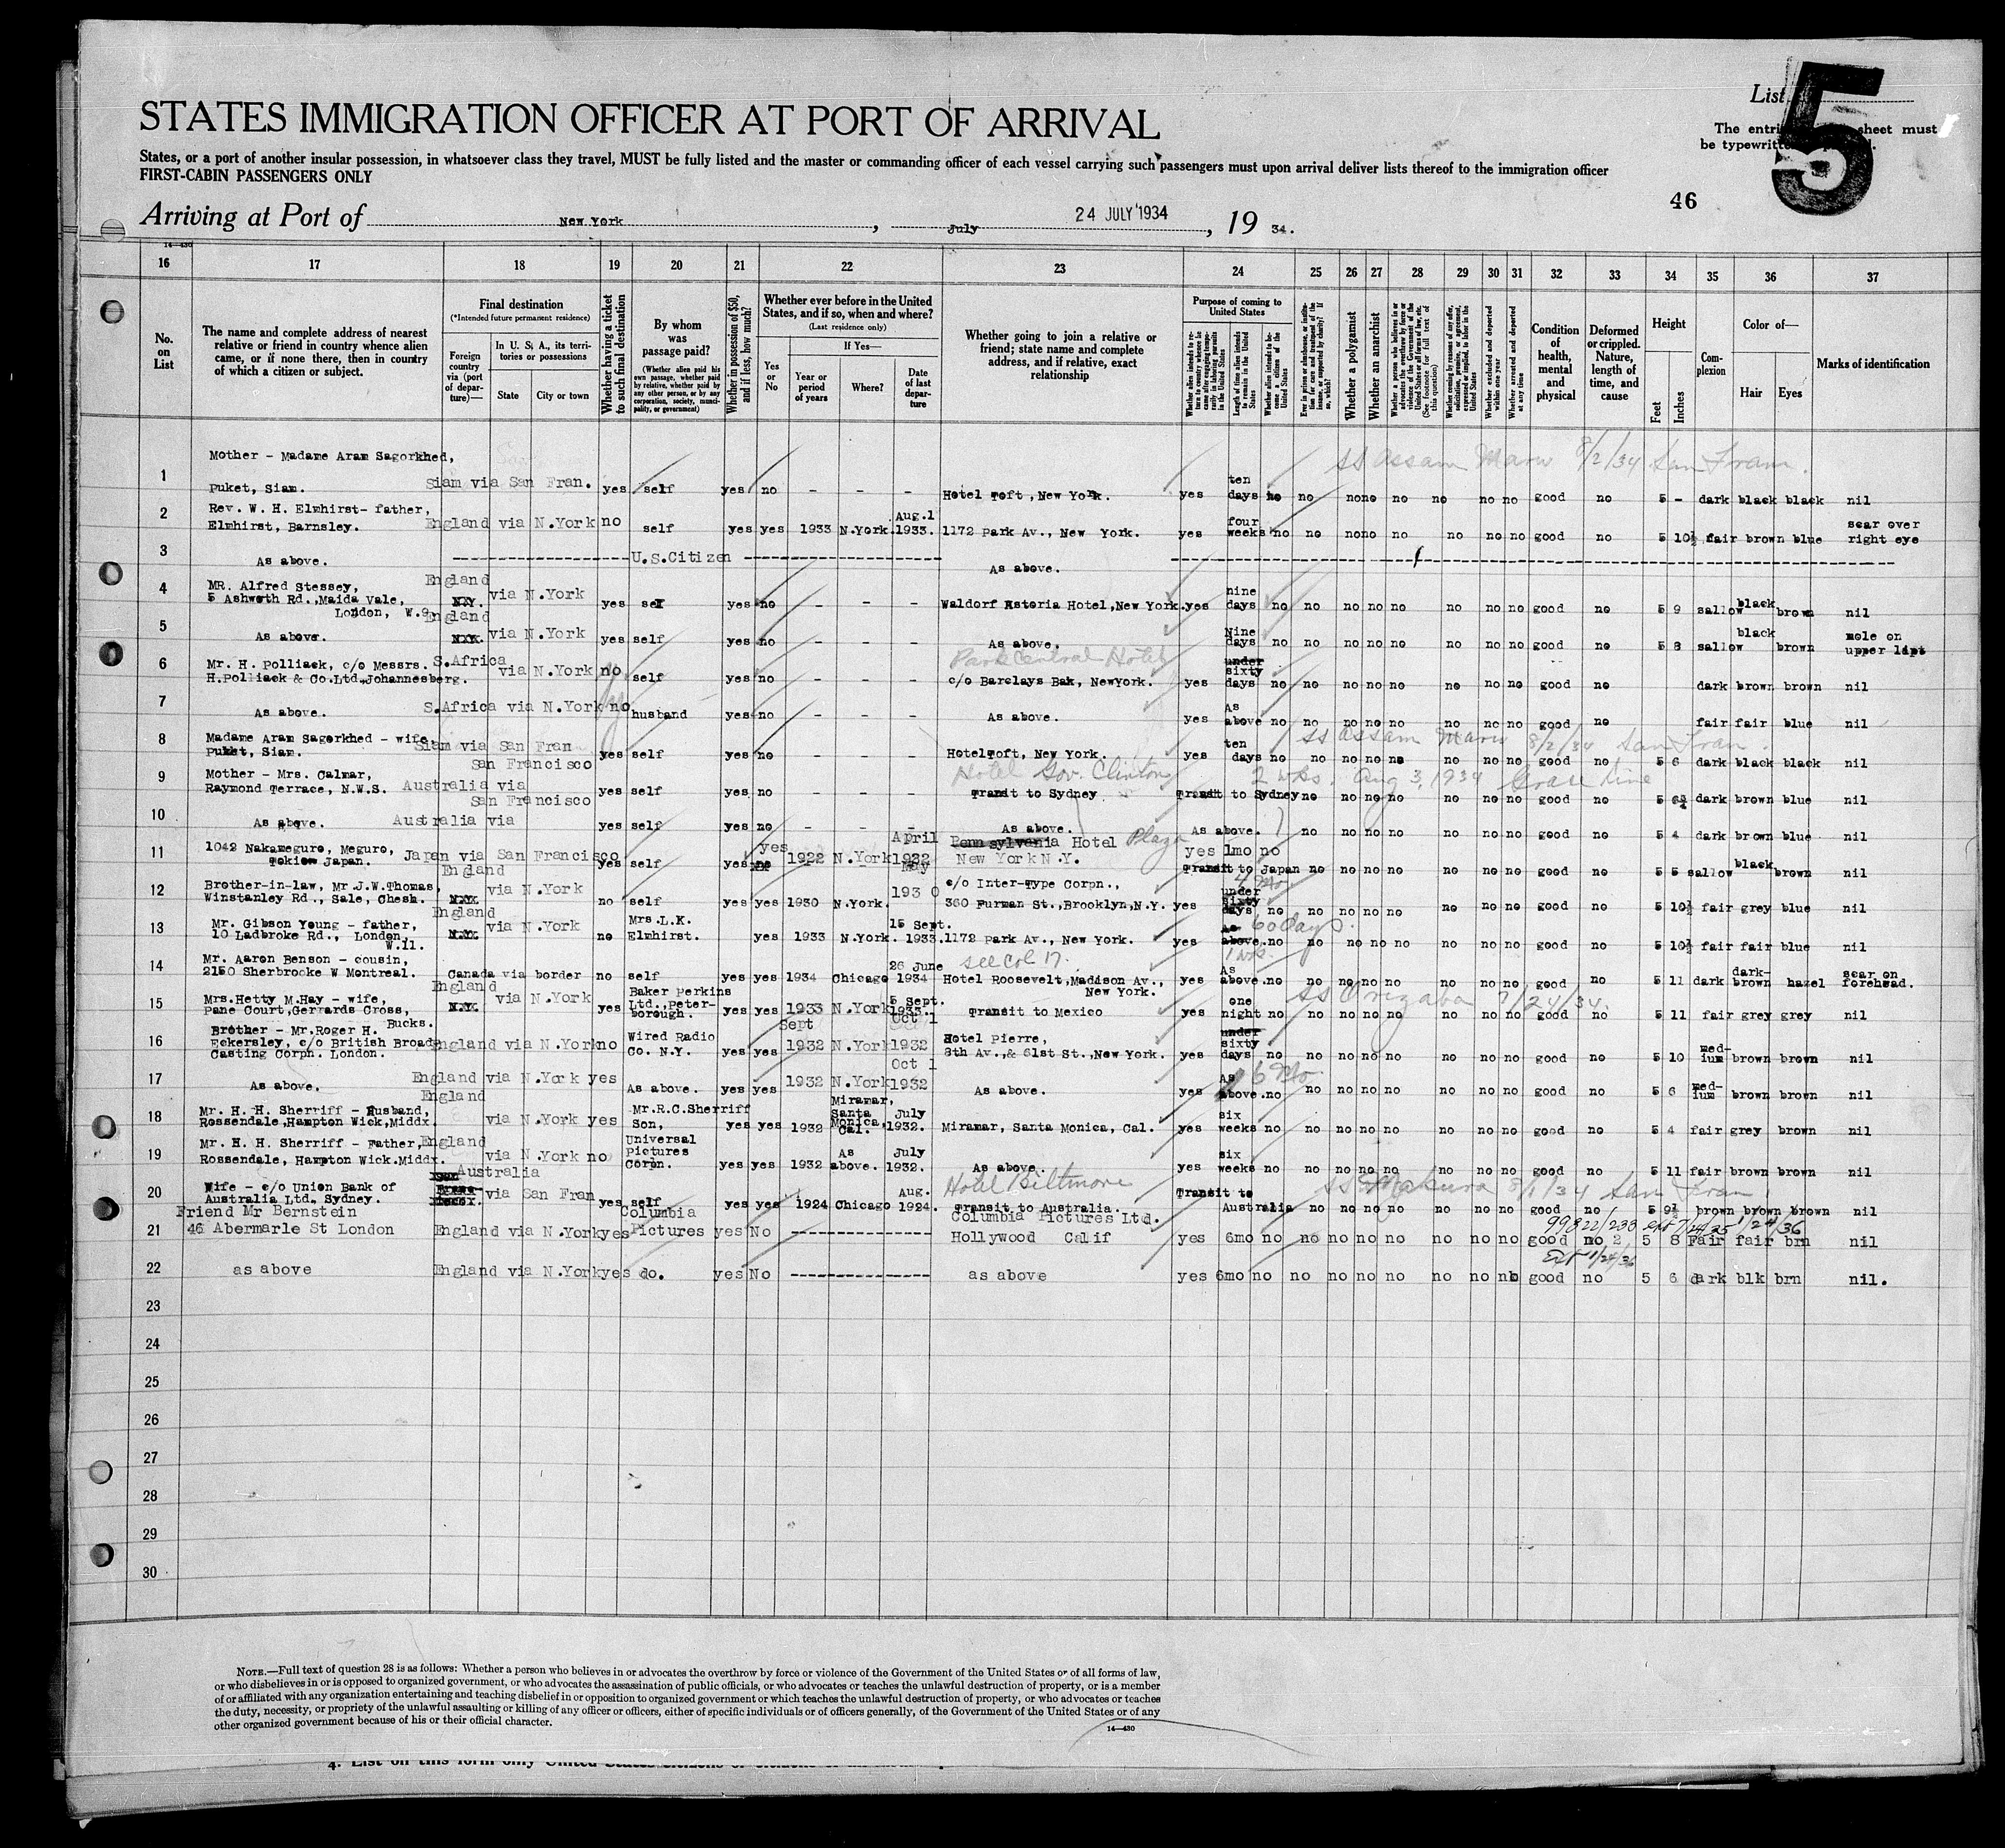 STATES IMMIGRATION OFFICER AT PORT OF ARRIVAL
List 5
The entries sheet must
be typewritten
States, or a port of another insular possession, in whatsoever class they travel, MUST be fully listed and the master or commanding officer of each vessel carrying such passengers must upon arrival deliver lists thereof to the immigration officer
FIRST-CABIN PASSENGERS ONLY
46
Arriving at Port of New York, July 24 JULY 1934, 19 34.
14—430
16 17 18 19 20 21 22 23 24 25 26 27 28 29 30 31 32 33 34 35 36 37
No. on List
The name and complete address of nearest relative or friend in country whence alien came, or if none there, then in country of which a citizen or subject.
Final destination
(*Intended future permanent residence)
Foreign country via (port of departure)—
In U. S. A., its territories or possessions
State
City or town
Whether having a ticket to such final destination
By whom was passage paid?
(Whether alien paid his own passage, whether paid by relative, whether paid by any other person, or by any corporation, society, municipality, or government)
Whether in possession of $50, and if less, how much?
Whether ever before in the United States, and if so, when and where?
(Last residence only)
Yes or No
If Yes—
Year or period of years
Where?
Date of last departure
Whether going to join a relative or friend; state name and complete address, and if relative, exact relationship
Purpose of coming to United States
Whether alien intends to return to country whence he came after engaging temporarily in laboring pursuits in the United States
Length of time alien intends to remain in the United States
Whether alien intends to become a citizen of the United States
Ever in prison or almshouse, or institution for care and treatment of the insane, or supported by charity? If so, which?
Whether a polygamist
Whether an anarchist
Whether a person who believes in or advocates the overthrow by force or violence of the Government of the United States or all forms of law, etc. (See footnote for full text of this question)
Whether coming by reason of any offer, solicitation, promise, or agreement, expressed or implied, to labor in the United States
Whether excluded and deported within one year
Whether arrested and deported at any time
Condition of health, mental and physical
Deformed or crippled. Nature, length of time, and cause
Height
Feet
Inches
Complexion
Color of—
Hair
Eyes
Marks of identification
SS Assam Maru 8/2/34 San Fran.
1 Mother - Madame Aram Sagorkhed, Puket, Siam. Siam via San Fran. yes self yes no - - - Hotel Toft, New York. yes ten days no no no no no no no no good no 5 - dark black black nil
2 Rev. W. H. Elmhirst- father, Elmhirst, Barnsley. England via N.York no self yes yes 1933 N.York. Aug.1 1933. 1172 Park Av., New York. yes four weeks no no no no no no no no good no 5 10½ fair brown blue scar over right eye
3 As above. U.S.Citizen As above.
4 MR. Alfred Stessey, 5 Ashworth Rd.,Maida Vale, London, W.9. England N.Y. via N.York yes self yes no - - - Waldorf Astoria Hotel,New York. yes nine days no no no no no no no no good no 5 9 sallow black brown nil
5 As above. England N.Y. via N.York yes self yes no - - - As above. Nine days no no no no no no no no good no 5 8 sallow black brown mole on upper lip
Park Central Hotel
6 Mr. H. Polliack, c/o Messrs. H.Polliack & Co.Ltd.Johannesberg. S.Africa via N.York no self yes no - - - c/o Barclays Bak, NewYork. yes under sixty days no no no no no no no no good no dark brown brown nil
7 As above. S.Africa via N.York no husband yes no - - - As above. yes As above no no no no no no no no good no fair fair blue nil
SS Assam Maru 8/2/34 San Fran.
8 Madame Aram Sagorkhed - wife, Puket, Siam. Siam via San Fran yes self yes no - - - HotelToft, New York. yes ten days no no no no no no no no good no 5 6 dark black black nil
Hotel Gov. Clinton 2 wks. Aug 3, 1934 Grace Line
9 Mother - Mrs. Calmar, Raymond Terrace, N.W.S. Australia via San Francisco yes self yes no - - - Transit to Sydney Transit to Sydney no no no no no no no no good no 5 6½ dark brown blue nil
10 As above. Australia via San Francisco yes self yes no - - - As above. As above. no no no no no no no good no 5 4 dark brown blue nil
11 1042 Nakameguro, Meguro, Tokio Japan. Japan via San Francisco yes self yes yes no 1922 N.York April 1932 Pennsylvania Hotel Plaza New York N.Y. yes 1mo no Transit to Japan no no no no no no no good no 5 5 sallow black brown nil
12 Brother-in-law, Mr.J.W.Thomas, Winstanley Rd., Sale, Chesh. England N.Y. via N.York no self yes yes 1930 N.York. May 1930 c/o Inter-Type Corpn., 360 Furman St.,Brooklyn,N.Y. yes under sixty days no no no no no no no no good no 5 10½ fair grey blue nil
13 Mr. Gibson Young - father, 10 Ladbroke Rd., London, W.11. England N.Y. via N.York no Mrs.L.K. Elmhirst. yes 1933 N.York. 15 Sept. 1933. 1172 Park Av., New York. yes As above. 60 days. no no no no no no no no good no 5 10½ fair fair blue nil
see Col 17. 1 wk.
14 Mr. Aaron Benson - cousin, 2150 Sherbrooke W Montreal. Canada via border no self yes yes 1934 Chicago 26 June 1934 Hotel Roosevelt,Madison Av., New York. yes As above. no no no no no no no no good no 5 11 dark dark-brown hazel scar on forehead.
SS Orizaba 7/24/34.
15 Mrs.Hetty M.Hay - wife, Pane Court,Gerrards Cross, Bucks. England N.Y. via N.York yes Baker Perkins Ltd.,Peterborough. yes yes 1933 N.York 5 Sept. 1933. Transit to Mexico yes one night no no no no no no no no good no 5 11 fair grey grey nil
16 Brother - Mr.Roger H. Eckersley, c/o British Broad Casting Corpn. London. England via N.York no Wired Radio Co. N.Y. yes yes Sept 1932 N.York Oct 1 1932 Hotel Pierre, 8th Av.,& 61st St.,New York. yes under sixty days no no no no no no no no good no 5 10 medium brown brown nil
17 As above. England via N.York yes As above. yes yes 1932 N.York Oct 1 1932 As above. yes As above. 6 Mo no no no no no no no no good no 5 6 medium brown brown nil
18 Mr. H. H. Sherriff - Husband, Rossendale,Hampton Wick,Middx. England via N.York yes Mr.R.C.Sherriff Son, yes yes 1932 Miramar, Santa Monica, Cal. July 1932. Miramar, Santa Monica, Cal. yes six weeks no no no no no no no no good no 5 4 fair grey brown nil
19 Mr. H. H. Sherriff - Father, Rossendale, Hampton Wick.Middx. England via N.York no Universal Pictures Corpn. yes yes 1932 As above. July 1932. As above. yes six weeks no no no no no no no no good no 5 11 fair brown brown nil
Hotel Biltmore SS Makura 8/1/34 San Fran.
20 Wife - c/o Union Bank of Australia Ltd. Sydney. Australia via San Fran yes self yes yes 1924 Chicago Aug. 1924. Transit to Australia. Transit to Australia no no no no no no no good no 5 9½ brown brown brown nil
99822/233 ext 7/24/35 1/24/36
21 Friend Mr Bernstein 46 Abermarle St London England via N.York yes Columbia Pictures yes No Columbia Pictures Ltd. Hollywood Calif yes 6mo no no no no no no no no good no 5 8 Fair fair brn nil
Ext 1/24/36
22 as above England via N.York yes do. yes No as above yes 6mo no no no no no no no no good no 5 6 dark blk brn nil.
23
24
25
26
27
28
29
30
NOTE.—Full text of question 28 is as follows: Whether a person who believes in or advocates the overthrow by force or violence of the Government of the United States or of all forms of law,
or who disbelieves in or is opposed to organized government, or who advocates the assassination of public officials, or who advocates or teaches the unlawful destruction of property, or is a member
of or affiliated with any organization entertaining and teaching disbelief in or opposition to organized government or which teaches the unlawful destruction of property, or who advocates or teaches
the duty, necessity, or propriety of the unlawful assaulting or killing of any officer or officers, either of specific individuals or of officers generally, of the Government of the United States or of any
other organized government because of his or their official character.
14—430
4. List on this form only United States citizens or citizens of